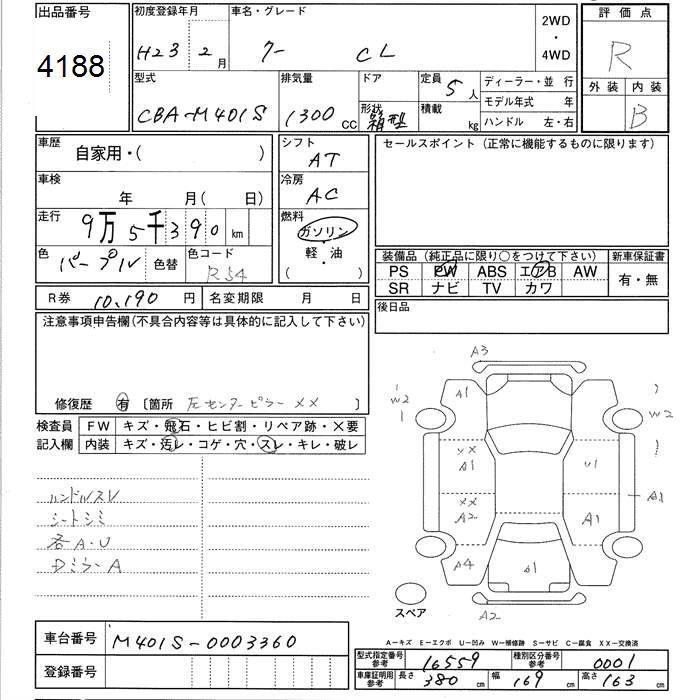 出品番号 初度登録年月 車名・グレード 2WD ・ 4WD 評価点
4188 H23 2月 クー CL R
型式 排気量 ドア 定員 5人 ディーラー・並行 外装 内装
CBA-M401S 1300cc 形状 箱型 積載 kg モデル年式 年 B
ハンドル 左・右
車歴 自家用・( ) シフト AT セールスポイント(正常に機能するものに限ります)
車検 年 月( 日) 冷房 AC
走行 9万5千390km 燃料 ガソリン
色 パープル 色替 色コード R54 軽・油 ( )
装備品(純正品に限り○をつけて下さい) 新車保証書
PS PW ABS エアB AW 有・無
SR ナビ TV カワ
R券 10,190円 名変期限 月 日 後日品
注意事項申告欄(不具合内容等は具体的に記入して下さい)
修復歴 有 〔箇所 左センターピラー XX 〕
検査員 FW キズ・飛石・ヒビ割・リペア跡・X要
記入欄 内装 キズ・汚レ・コゲ・穴・スレ・キレ・破レ
ハンドルスレ
シートシミ
各A・U
Dミラー A
A3
A1
W2 W2
XX
A1 U1
XX A1
A2 A1
A4 A1
A2
スペア
車台番号 M401S-0003360
登録番号
A-キズ E-エクボ U-凹み W-補修跡 S-サビ C-腐食 XX-交換済
型式指定番号 参考 16559 種別区分番号 参考 0001
車庫証明用 参考 長さ 380cm 幅 169cm 高さ 163cm